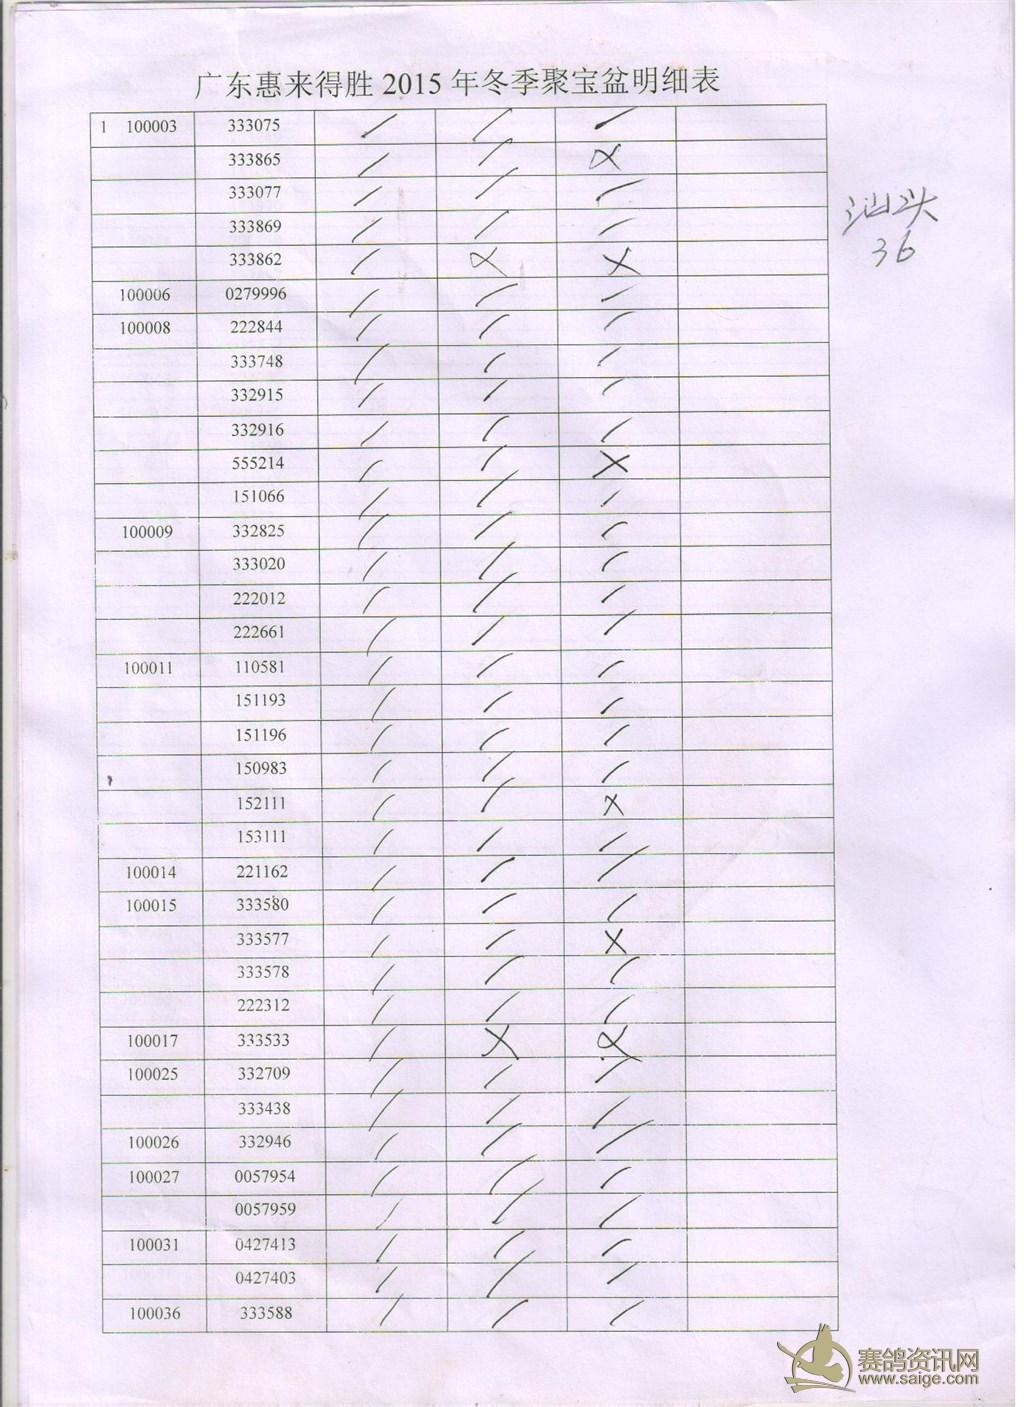 广东惠来得胜 2015 年冬季聚宝盆明细表
1 100003 333075 / / /
333865 / / X
333077 / / /
汕头
333869 / / /
36
333862 / X X
100006 0279996 / / /
100008 222844 / / /
333748 / / /
332915 / / /
332916 / / /
555214 / / X
151066 / / /
100009 332825 / / /
333020 / / /
222012 / / /
222661 / / /
100011 110581 / / /
151193 / / /
151196 / / /
150983 / / /
152111 / / X
153111 / / /
100014 221162 / / /
100015 333580 / / /
333577 / / X
333578 / / /
222312 / / /
100017 333533 / X X
100025 332709 / / /
333438 / / /
100026 332946 / / /
100027 0057954 / / /
0057959 / / /
100031 0427413 / / /
0427403 / / /
100036 333588 / / /
赛鸽资讯网
www.saige.com